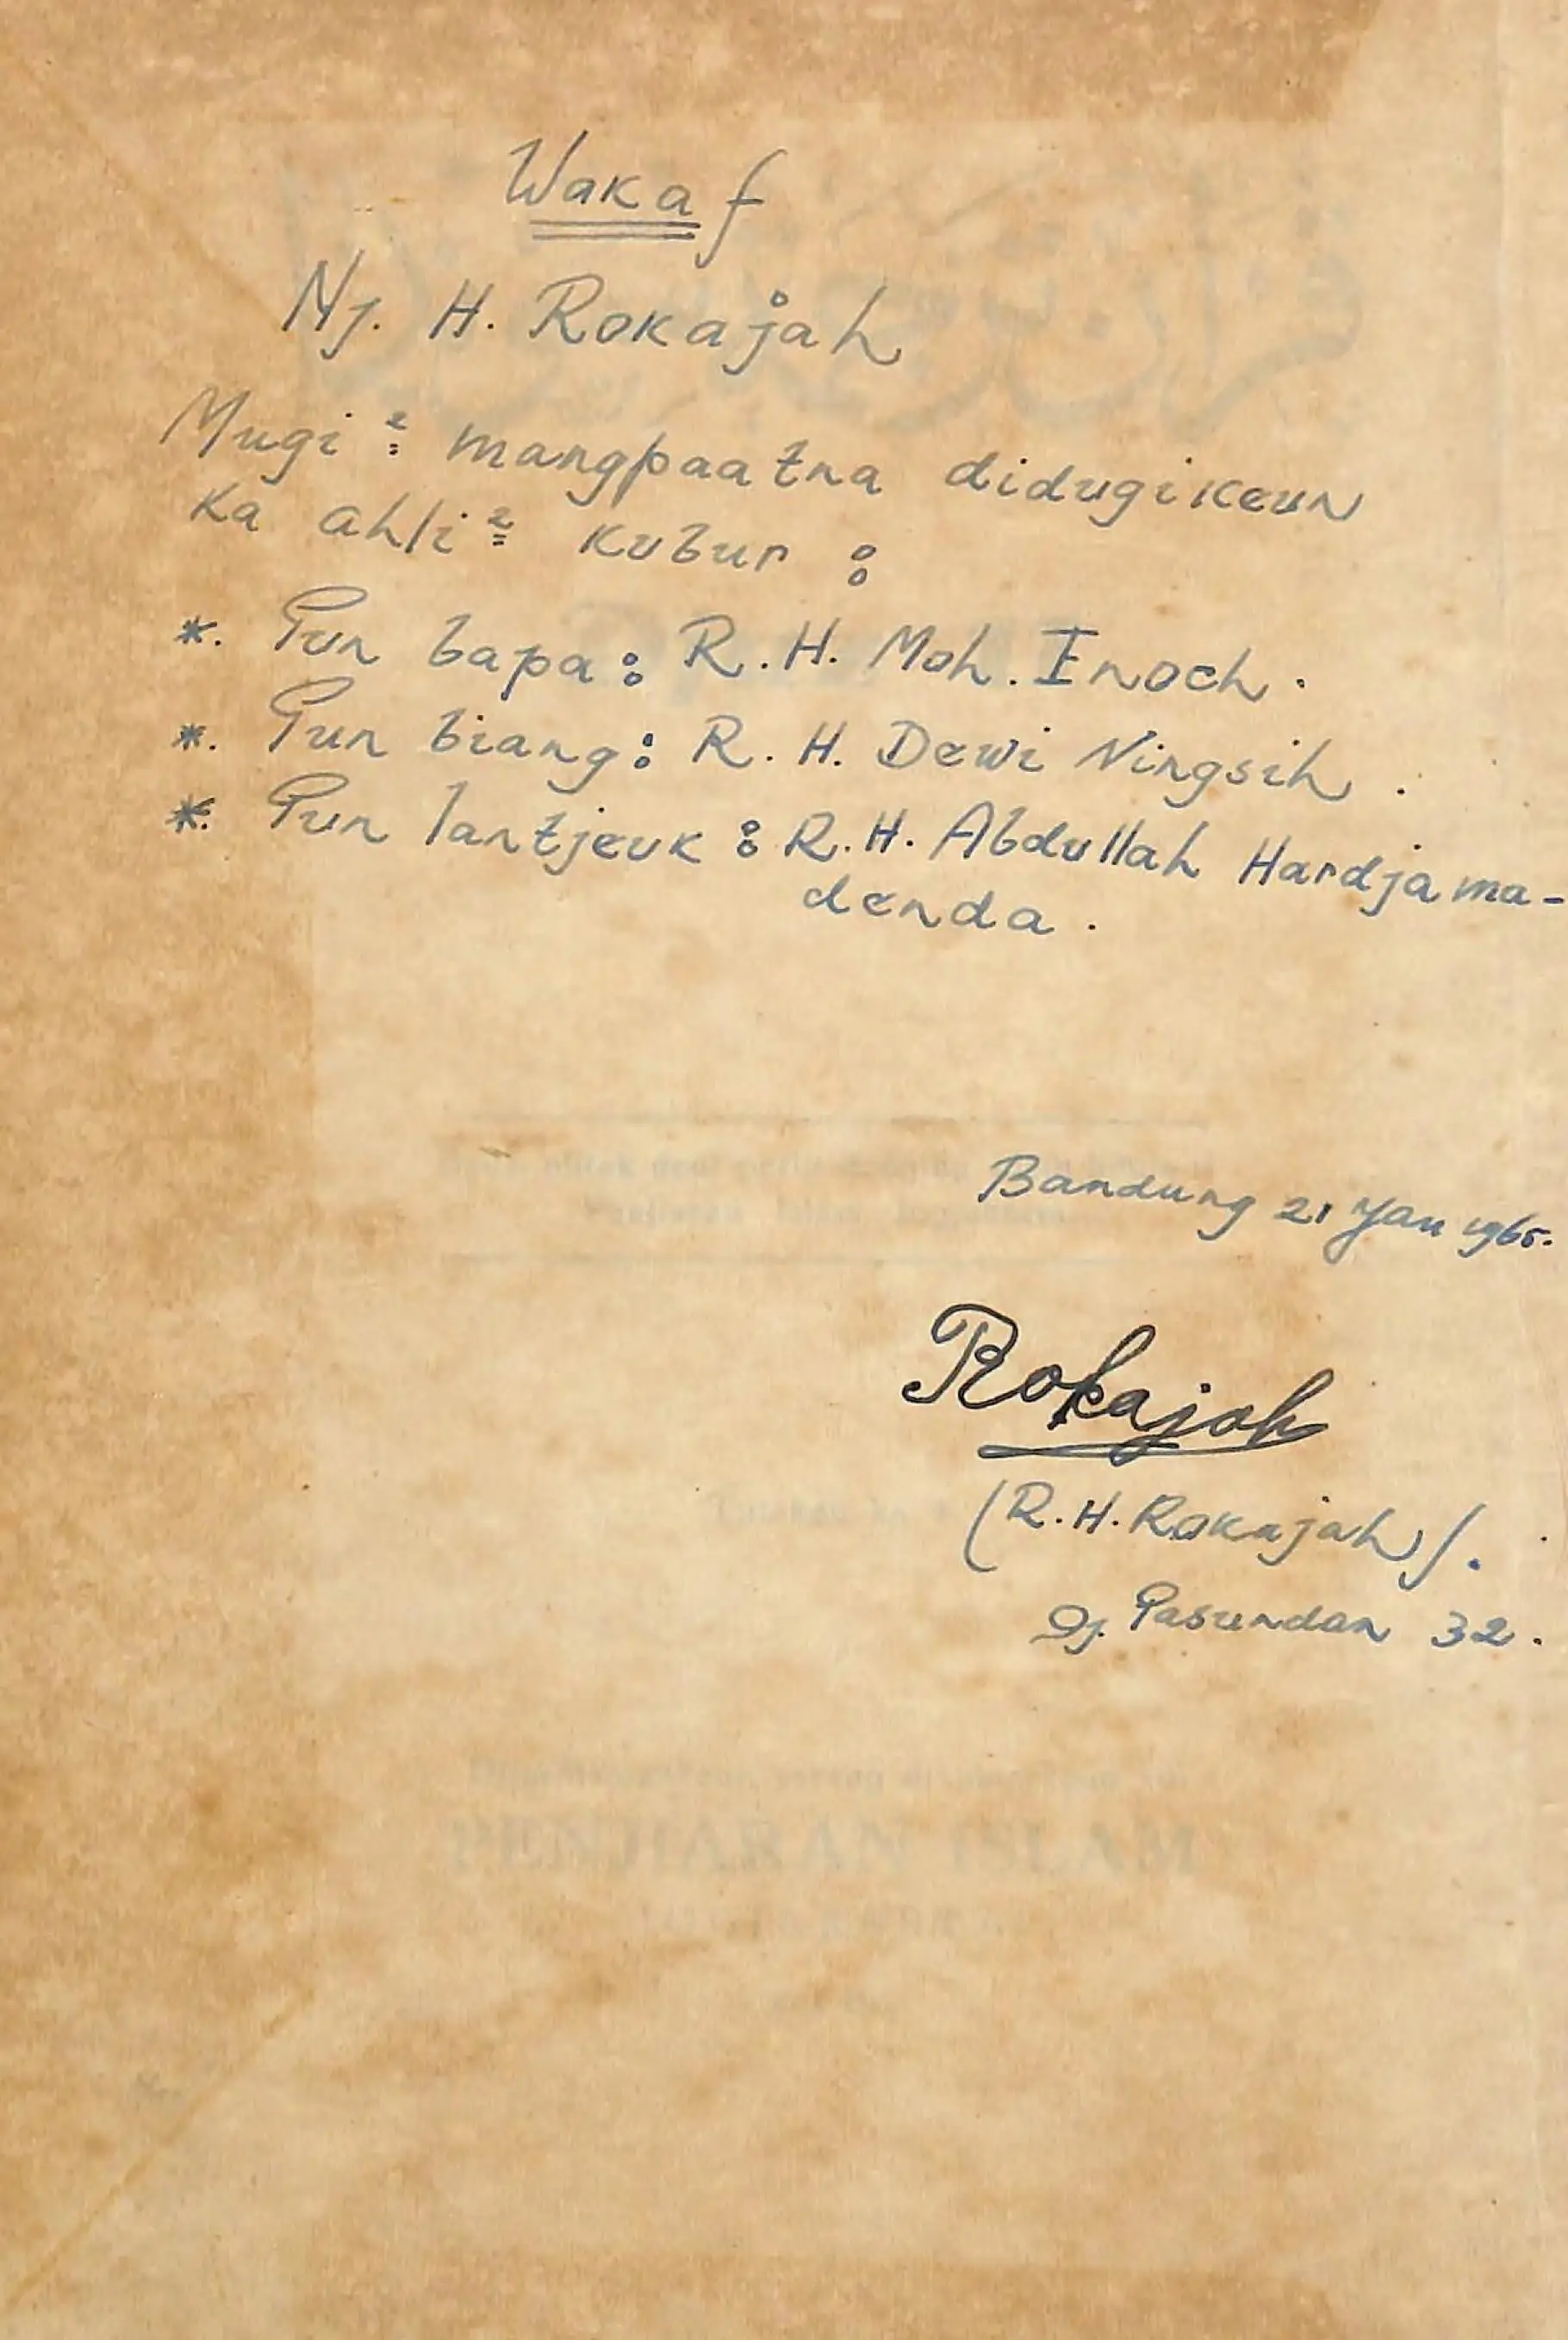 Wakaf
Nj. H. Rokajah
Mugi² mangpaatna didugikeun
Ka ahli² kubur :
*. Pun bapa : R.H. Moh. Enoch.
*. Pun biang : R. H. Dewi Ningsih.
*. Pun lantjeuk : R.H. Abdullah Hardjama-
denda.
Bandung 21 Jan 1965.
Rokajah
(R.H. Rokajah).
Dj. Pasundan 32.
PENJIARAN ISLAM